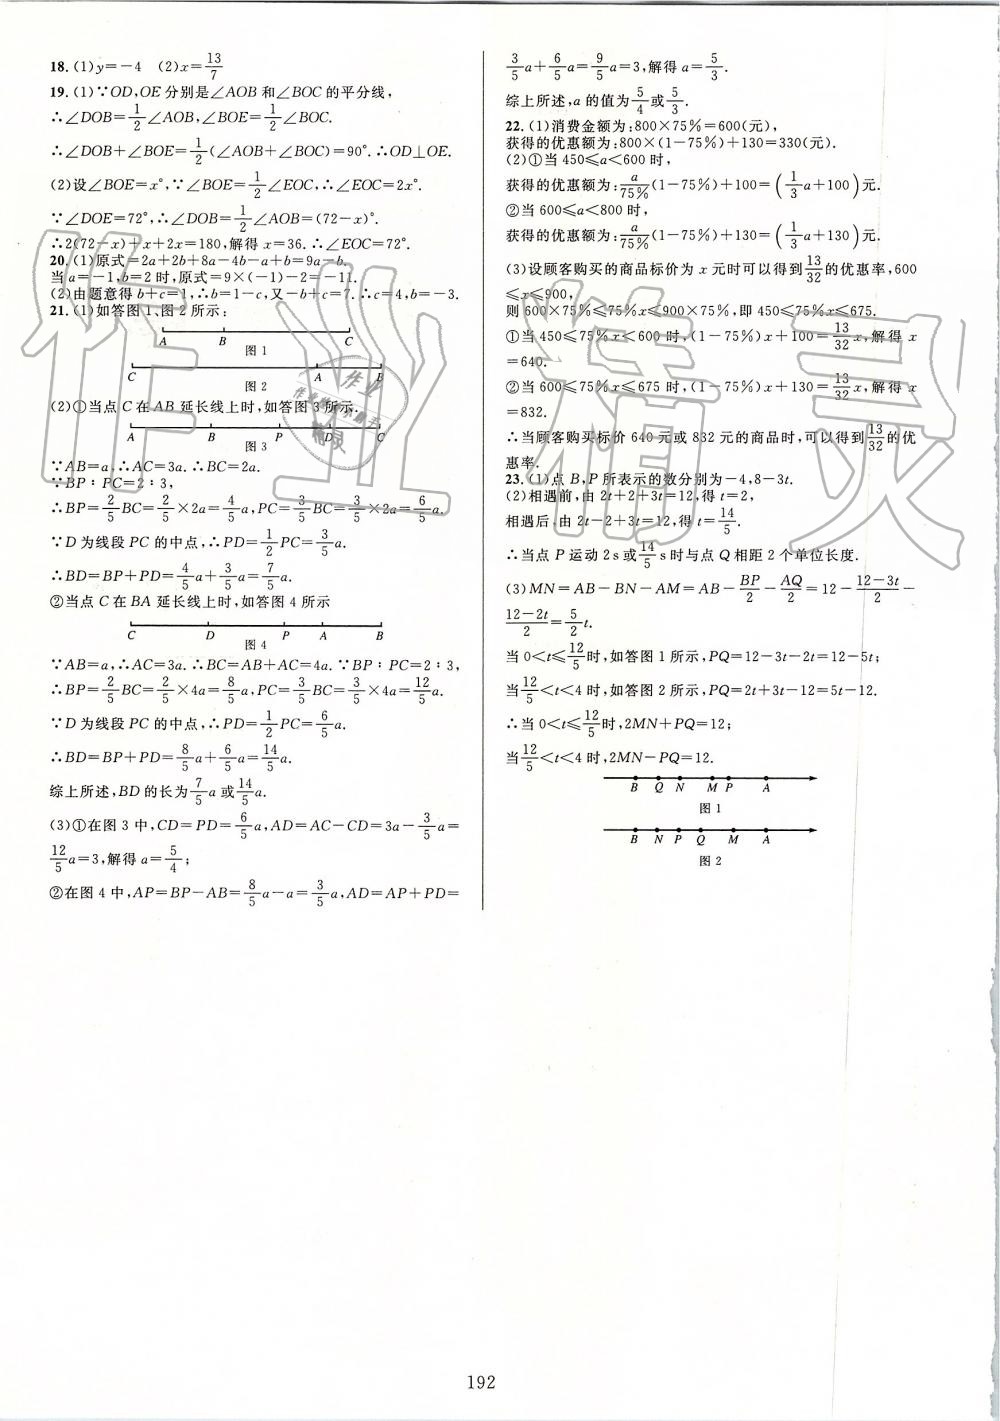 18.(1)y=-4 (2)x=13/7
19.(1)∵OD,OE分别是∠AOB和∠BOC的平分线,
∴∠DOB=1/2∠AOB,∠BOE=1/2∠BOC.
∴∠DOB+∠BOE=1/2(∠AOB+∠BOC)=90°.∴OD⊥OE.
(2)设∠BOE=x°,∵∠BOE=1/2∠EOC,∴∠EOC=2x°.
∵∠DOE=72°,∴∠DOB=1/2∠AOB=(72-x)°.
∴2(72-x)+x+2x=180,解得x=36.∴∠EOC=72°.
20.(1)原式=2a+2b+8a-4b-a+b=9a-b.
当a=-1,b=2时,原式=9×(-1)-2=-11.
(2)由题意得b+c=1,∴b=1-c,又-b+c=7.∴c=4,b=-3.
21.(1)如答图1,图2所示:
A B C
图1
C A B
图2
(2)①当点C在AB延长线上时,如答图3所示.
A B P D C
图3
∵AB=a,∴AC=3a.∴BC=2a.
∵BP∶PC=2∶3,
∴BP=2/5BC=2/5×2a=4/5a,PC=3/5BC=3/5×2a=6/5a.
∵D为线段PC的中点,∴PD=1/2PC=3/5a.
∴BD=BP+PD=4/5a+3/5a=7/5a.
②当点C在BA延长线上时,如答图4所示
C D P A B
图4
∵AB=a,∴AC=3a.∴BC=AB+AC=4a.∵BP∶PC=2∶3,
∴BP=2/5BC=2/5×4a=8/5a,PC=3/5BC=3/5×4a=12/5a.
∵D为线段PC的中点,∴PD=1/2PC=6/5a.
∴BD=BP+PD=8/5a+6/5a=14/5a.
综上所述,BD的长为7/5a或14/5a.
(3)①在图3中,CD=PD=6/5a,AD=AC-CD=3a-3/5a=
12/5a=3,解得a=5/4;
②在图4中,AP=BP-AB=8/5a-a=3/5a,AD=AP+PD=
3/5a+6/5a=9/5a=3,解得a=5/3.
综上所述,a的值为5/4或5/3.
22.(1)消费金额为:800×75%=600(元),
获得的优惠额为:800×(1-75%)+130=330(元).
(2)①当450≤a<600时,
获得的优惠额为:a/75%(1-75%)+100=(1/3a+100)元.
②当600≤a<800时,
获得的优惠额为:a/75%(1-75%)+130=(1/3a+130)元.
(3)设顾客购买的商品标价为x元时可以得到13/32的优惠率,600
≤x≤900,
则600×75%≤75%x≤900×75%,即450≤75%x≤675.
①当450≤75%x<600时,(1-75%)x+100=13/32x,解得x
=640.
②当600≤75%x≤675时,(1-75%)x+130=13/32x,解得x
=832.
∴当顾客购买标价640元或832元的商品时,可以得到13/32的优
惠率.
23.(1)点B,P所表示的数分别为-4,8-3t.
(2)相遇前,由2t+2+3t=12,得t=2,
相遇后,由2t-2+3t=12,得t=14/5.
∴当点P运动2s或14/5s时与点Q相距2个单位长度.
(3)MN=AB-BN-AM=AB-BP/2-AQ/2=12-(12-3t)/2-
(12-2t)/2=5/2t.
当0<t≤12/5时,如答图1所示,PQ=12-3t-2t=12-5t;
当12/5<t<4时,如答图2所示,PQ=2t+3t-12=5t-12.
∴当0<t≤12/5时,2MN+PQ=12;
当12/5<t<4时,2MN-PQ=12.
B Q N M P A
图1
B N P Q M A
图2
192
作业精灵